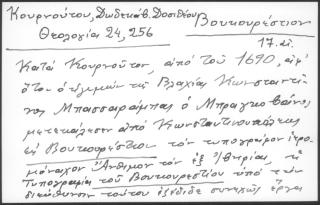 Κουρνούτου, Δωδεκάβ. Δοσιθέου
Θεολογία 24, 256
Βουκουρέστιον
17. αἰ.
Κατὰ Κουρνοῦτον, ἀπὸ τοῦ 1690, ἀφ'
ὅτου ὁ ἡγεμὼν τῆς Βλαχίας Κωνσταντῖ-
νος Μπασσαράμπας ὁ Μπραγκοβάνος
μετεκάλεσεν ἀπὸ Κωνσταντινουπόλεως
εἰς Βουκουρέστιον τὸν τυπογράφον ἱερο-
μόναχον Ἄνθιμον τὸν ἐξ Ἰβηρίας, τὸ
Τυπογραφεῖον τοῦ Βουκουρεστίου ὑπὸ τὴν
διεύθυνσιν τούτου ἐξέδιδε συνεχῶς ἔργα